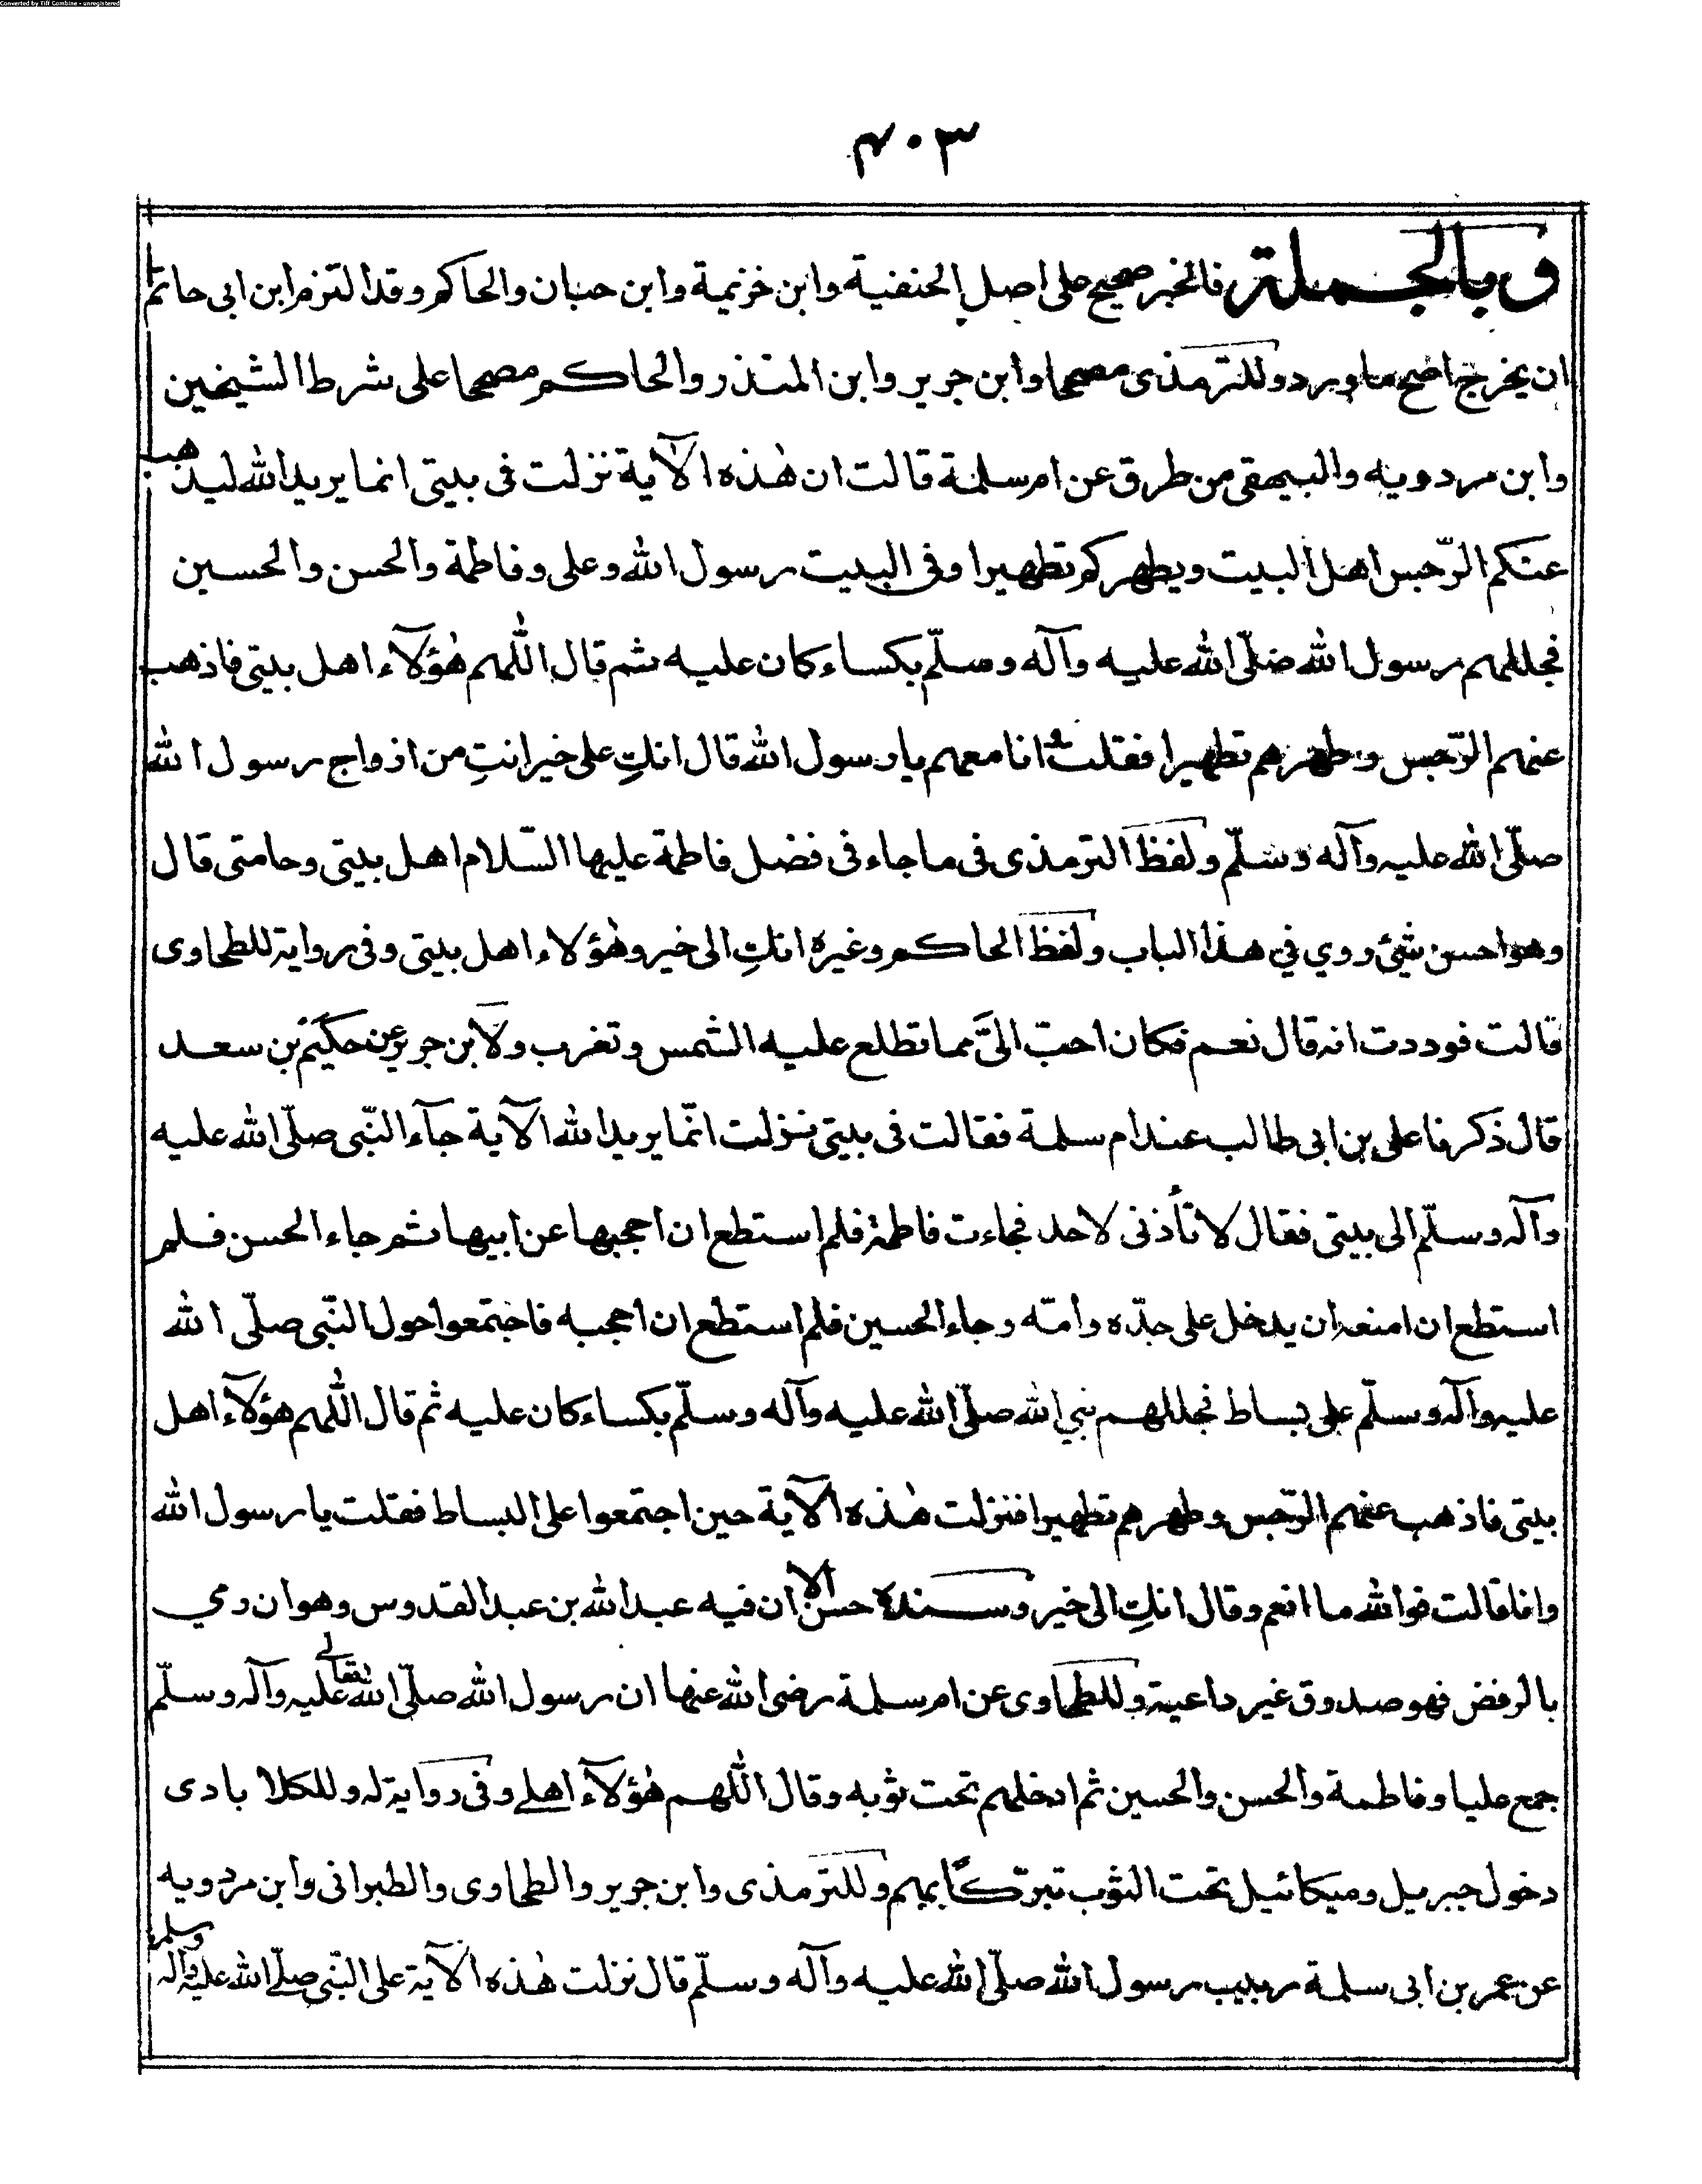 Converted by Tiff Combine - unregistered
٣٠٣
وبالجملة فالخبر صحيح على اصل الحنفية وابن خزيمة وابن حبان والحاكم وقد التزم ابن ابى حاتم
ان يخرج اصح ما ورد وللترمذى مصححا وابن جرير وابن المنذر والحاكم مصححا على شرط الشيخين
وابن مردويه والبيهقى من طرق عن ام سلمة قالت ان هٰذه الآية نزلت فى بيتى انما يريد الله ليذهب
عنكم الرّجس اهل البيت ويطهركم تطهيرا وفى البيت رسول الله وعلى وفاطمة والحسن والحسين
فجللهم رسول الله صلّى الله عليه وآله وسلّم بكساء كان عليه ثم قال اللّٰهم هٰؤلآء اهل بيتى فاذهب
عنهم الرّجس وطهرهم تطهيرا فقلت انا معهم يا رسول الله قال انكِ على خير انتِ من ازواج رسول الله
صلّى الله عليه وآله وسلّم ولفظ الترمذى فى ما جاء فى فضل فاطمة عليها السّلام اهل بيتى وحامتى قال
وهو احسن شيئ روي في هذا الباب ولفظ الحاكم وغيره انكِ الى خير وهٰؤلاء اهل بيتى وفى رواية للطحاوى
قالت فوددت انه قال نعم فكان احبّ الىَّ مما تطلع عليه الشمس وتغرب ولابن جرير عن حكيم بن سعد
قال ذكرنا على بن ابى طالب عند ام سلمة فقالت فى بيتى نزلت انّما يريد الله الآية جآء النّبى صلّى الله عليه
وآله وسلّم الى بيتى فقال لا تأذنى لاحد فجاءت فاطمة فلم استطع ان احجبها عن ابيها ثم جاء الحسن فلم
استطع ان امنعه ان يدخل على جدّه وأمّه وجاء الحسين فلم استطع ان احجبه فاجتمعوا حول النّبى صلّى الله
عليه وآله وسلّم على بساط فجللهم نبي الله صلّى الله عليه وآله وسلّم بكساء كان عليه ثم قال اللّٰهم هؤلآء اهل
بيتى فاذهب عنهم الرّجس وطهرهم تطهيرا فنزلت هٰذه الآية حين اجتمعوا على البساط فقلت يا رسول الله
وانا قالت فوالله ما انعم وقال انكِ الى خير وسنده حسن الا ان فيه عبد الله بن عبد القدوس وهو ان رمي
بالرفض فهو صدوق غير داعية وللطحاوى عن ام سلمة رضى الله عنها ان رسول الله صلّى الله تعالى عليه وآله وسلّم
جمع عليا وفاطمة والحسن والحسين ثم ادخلهم تحت ثوبه وقال اللّٰهم هٰؤلآء اهلي وفى رواية له وللكلابادى
دخول جبرئيل وميكائيل تحت الثوب تبرّكًا بهم وللترمذى وابن جرير والطحاوى والطبرانى وابن مردويه
عن عمر بن ابى سلمة ربيب رسول الله صلّى الله عليه وآله وسلّم قال نزلت هٰذه الآية على النّبى صلّى الله عليه وآله وسلم